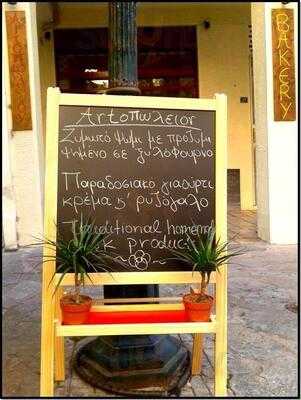 BAKERY
Αrtoπωλειον
Ζυμωτό ψωμί με προζύμι
ψημένο σε ξυλόφουρνο
Παραδοσιακό γιαούρτι
κρέμα & ρυζόγαλο
Traditional homemade
milk products